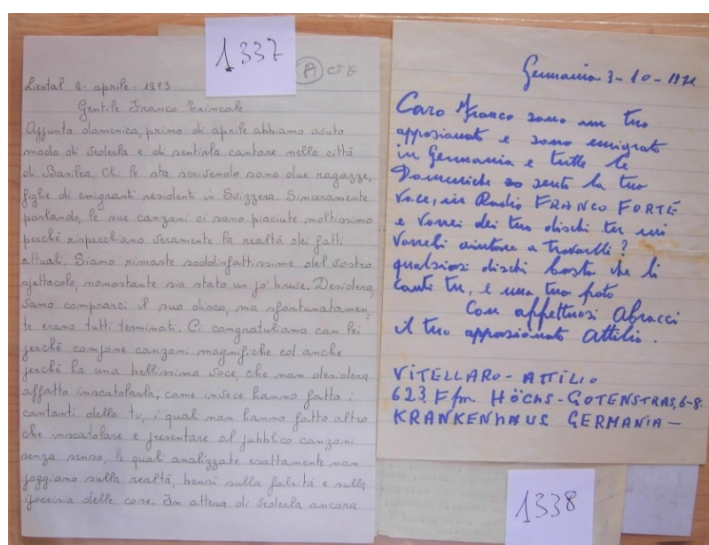 1337
A CTE
Liestal 2- aprile - 1973
Gentile Franco Trincale
Appunto domenica, primo di aprile abbiamo avuto
modo di vederla e di sentirla cantare nella città
di Basilea. Chi le sta scrivendo sono due ragazze,
figlie di emigranti residenti in Svizzera. Sinceramente
parlando, le sue canzoni ci sono piaciute moltissimo
perché rispecchiano veramente la realtà dei fatti
attuali. Siamo rimaste soddisfattissime del vostro
spettacolo, nonostante sia stato un po' breve. Desidera
vamo comprarci il suo disco, ma sfortunatamen
te erano tutti terminati. Ci congratuliamo con lei
perché compone canzoni magnifiche ed anche
perché ha una bellissima voce, che non desidera
affatto inscatolarla, come invece hanno fatto i
cantanti della tv, i quali non hanno fatto altro
che inscatolare e presentare al pubblico canzoni
senza senso, le quali analizzate esattamente non
poggiano sulla realtà, bensì sulla falsità e sulla
ipocrisia delle cose. In attesa di vederla ancora
Germania 3-10-1971
Caro Franco sono un tuo
apposionato e sono emigrato
in Germania e tutte le
Domeniche sento la tua
voce, in Radio FRANCO FORTE
e vorrei dei tuo dischi tu mi
vorrebi aiutare a trovarlli?
qualsiosi dischi basta che li
canti tu, e una tua foto
Con affettuosi Abracci
il tuo apposionato Attilio.
VITELLARO - ATTILIO
623 Ffm. HÖCHS-GOTENSTRAS, 6-8.
KRANKENHAUS GERMANIA -
1338